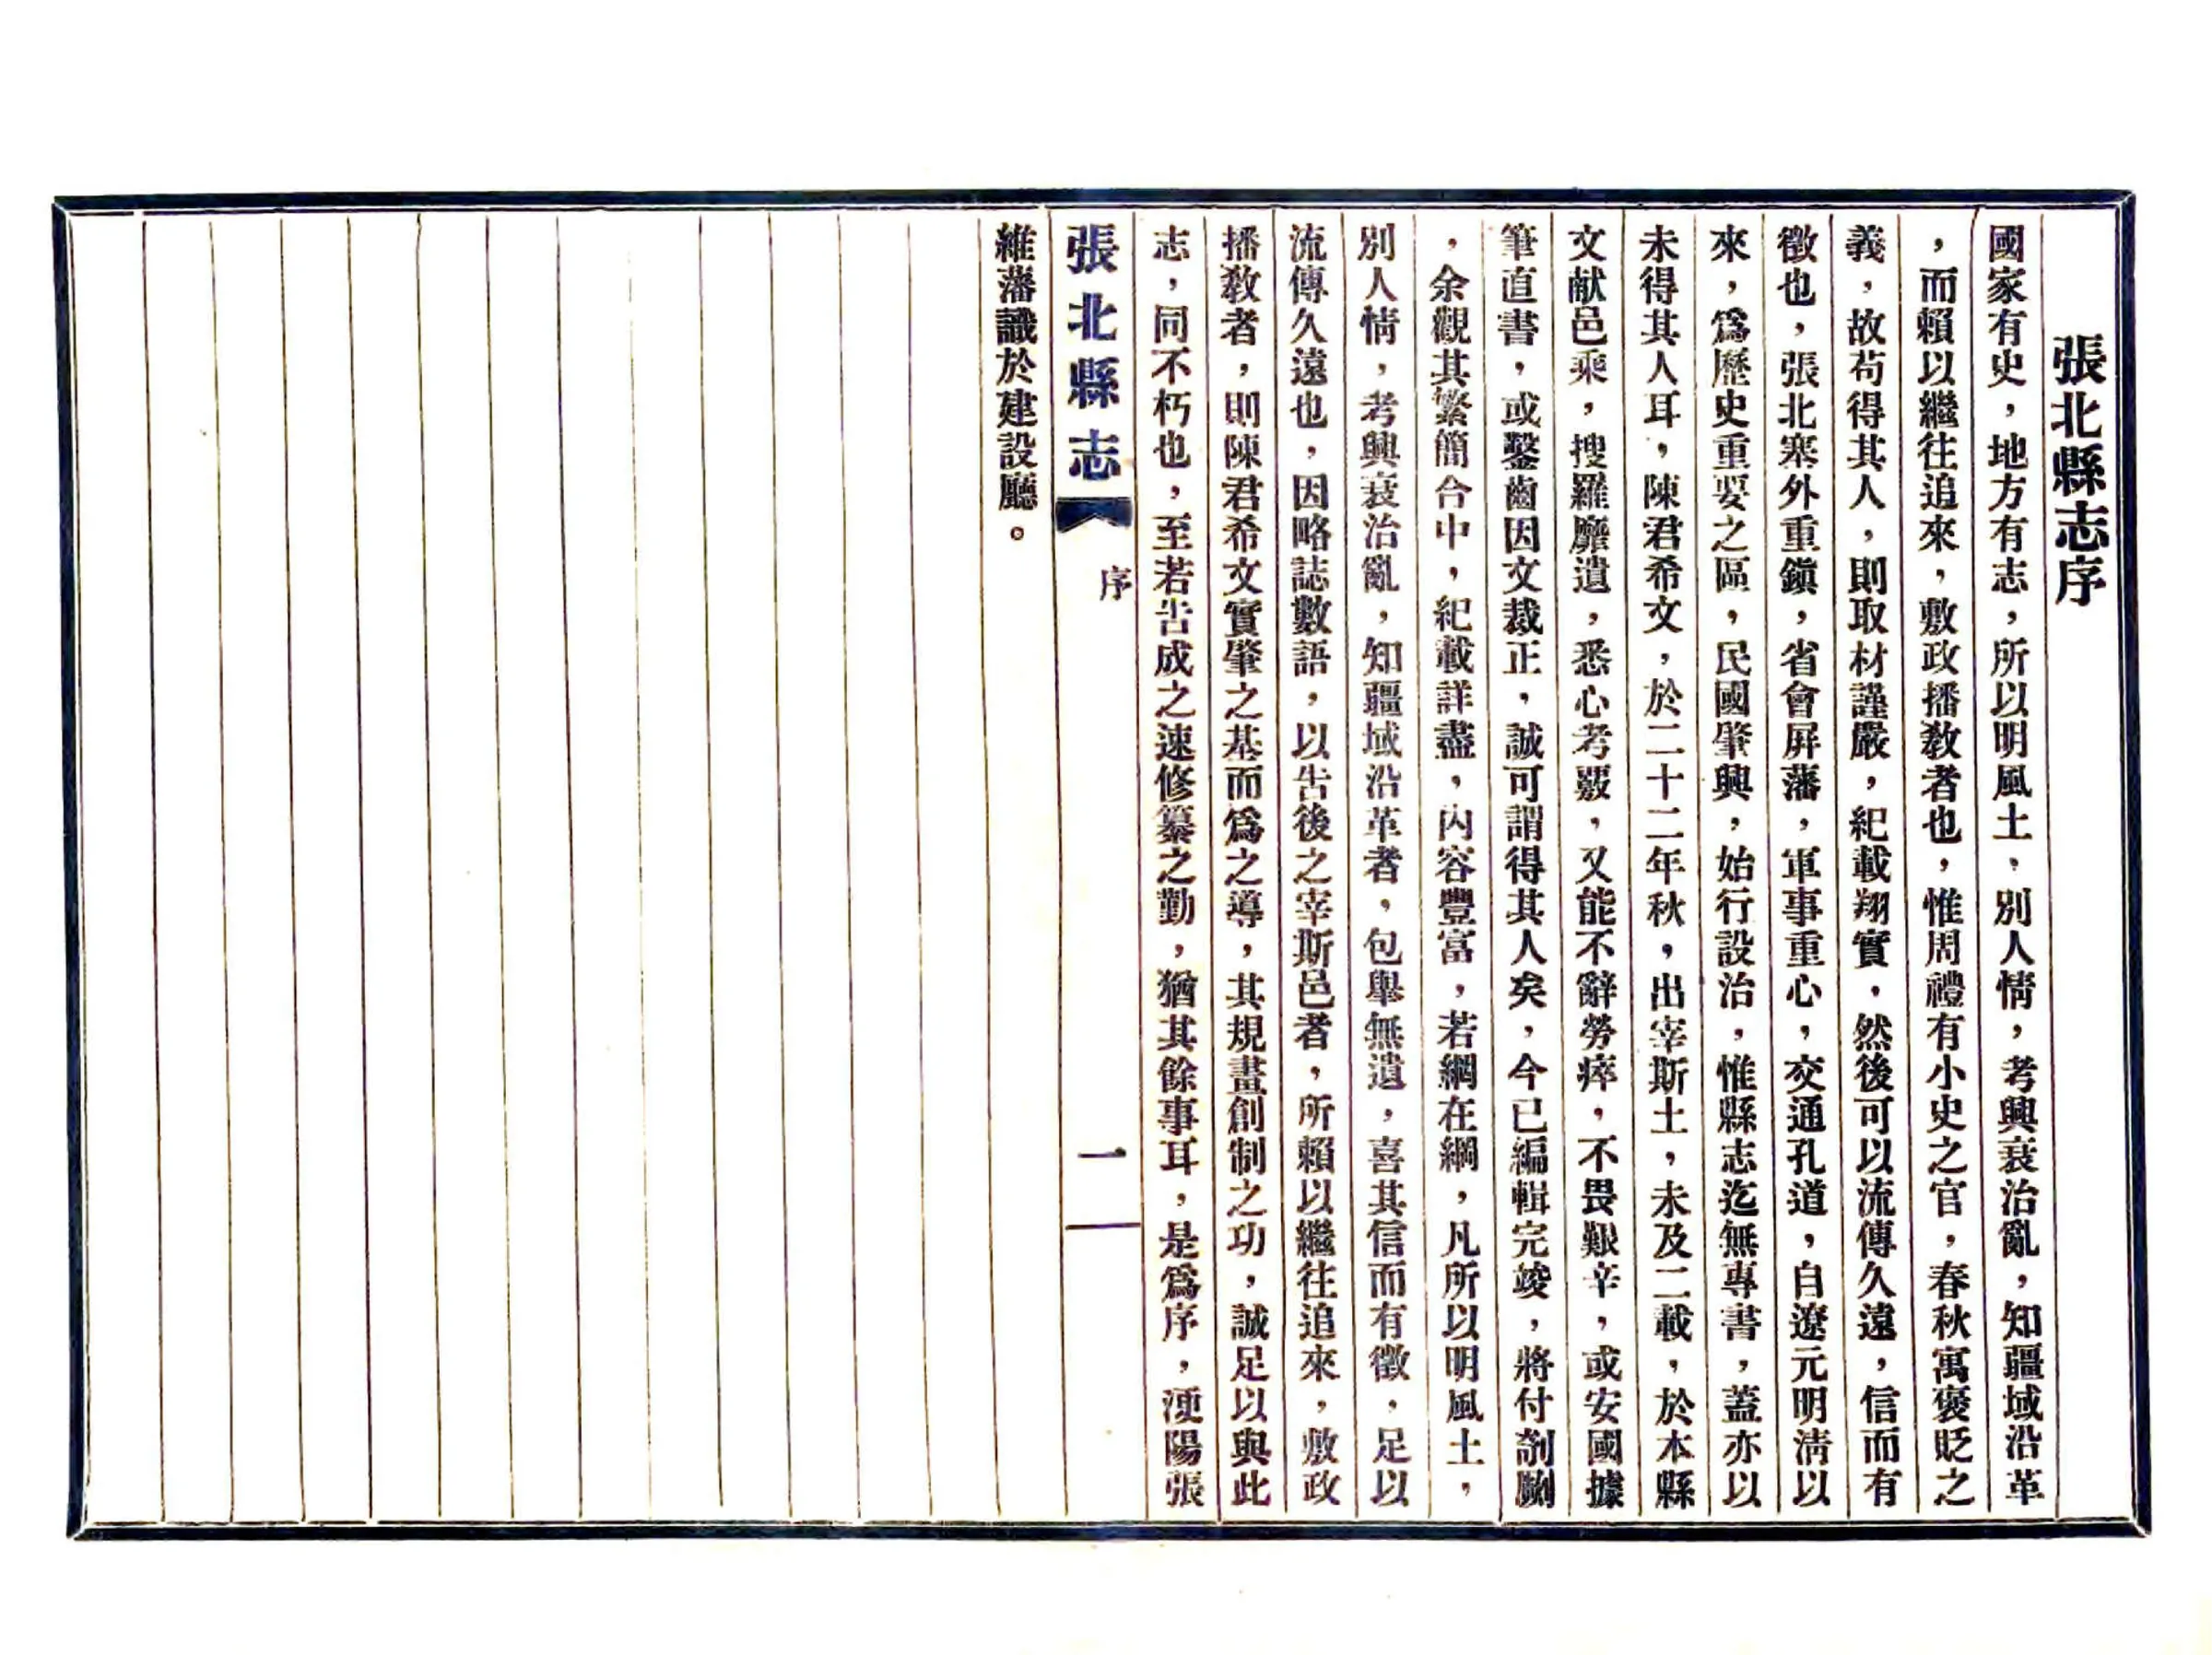 張北縣志序
國家有史，地方有志，所以明風土、別人情，考興衰治亂，知疆域沿革
，而賴以繼往追來，敷政播敎者也，惟周禮有小史之官，春秋寓褒貶之
義，故苟得其人，則取材謹嚴，紀載翔實，然後可以流傳久遠，信而有
徵也，張北寨外重鎭，省會屏藩，軍事重心，交通孔道，自遼元明淸以
來，爲歷史重要之區，民國肇興，始行設治，惟縣志迄無專書，蓋亦以
未得其人耳，陳君希文，於二十二年秋，出宰斯土，未及二載，於本縣
文献邑乘，搜羅靡遺，悉心考覈，又能不辭勞瘁，不畏艱辛，或安國據
筆直書，或鑿齒因文裁正，誠可謂得其人矣，今已編輯完竣，將付剞劂
，余觀其繁簡合中，紀載詳盡，內容豐富，若網在綱，凡所以明風土，
別人情，考興衰治亂，知疆域沿革者，包舉無遺，喜其信而有徵，足以
流傳久遠也，因略誌數語，以吿後之宰斯邑者，所賴以繼往追來，敷政
播敎者，則陳君希文實肇之基而爲之導，其規畫創制之功，誠足以與此
志，同不朽也，至若吿成之速修纂之勤，猶其餘事耳，是爲序，浭陽張
張北縣志 序 一
維藩識於建設廳。